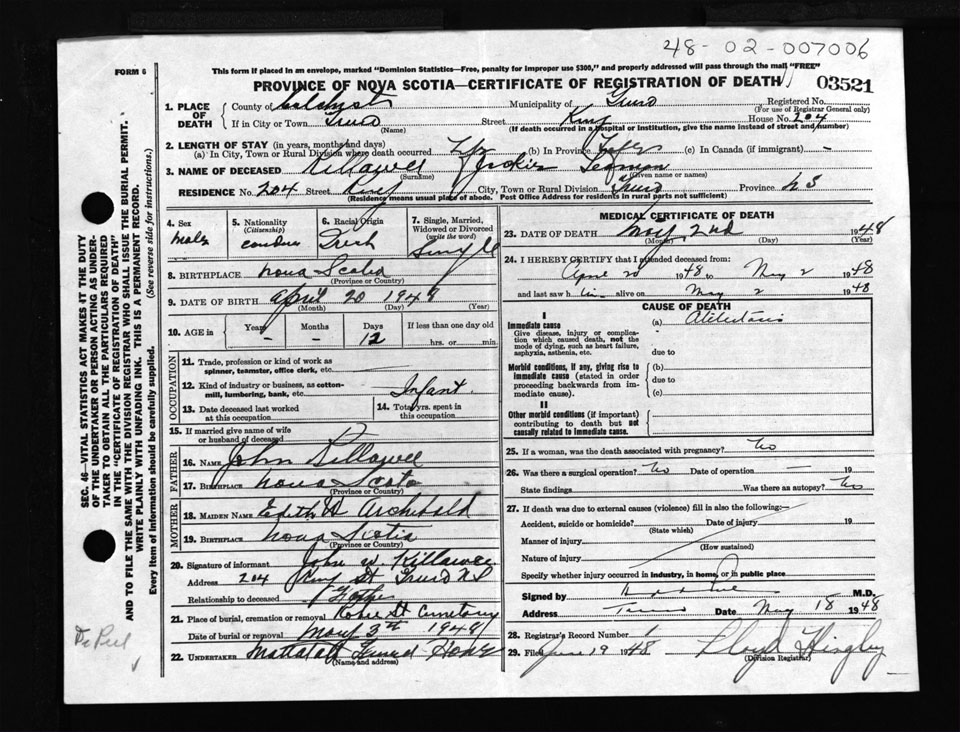 48-02-007006
FORM 6
This form if placed in an envelope, marked "Dominion Statistics—Free, penalty for improper use $300," and properly addressed will pass through the mail "FREE"
PROVINCE OF NOVA SCOTIA—CERTIFICATE OF REGISTRATION OF DEATH
03521
1. PLACE OF DEATH
County of Colchester Municipality of Truro Registered No.
(For use of Registrar General only)
If in City or Town Truro Street King House No. 204
(Name) (If death occurred in a hospital or institution, give the name instead of street and number)
2. LENGTH OF STAY (in years, months and days)
(a) In City, Town or Rural Division where death occurred (b) In Province (c) In Canada (if immigrant) -
3. NAME OF DECEASED Killawee
(Surname) (Given name or names)
RESIDENCE No. 204 Street King City, Town or Rural Division Truro Province N S
(Residence means usual place of abode. Post Office Address for residents in rural parts not sufficient)
4. Sex
Male
5. Nationality
(Citizenship)
6. Racial Origin
Irish
7. Single, Married, Widowed or Divorced
(write the word)
Single
8. BIRTHPLACE Nova Scotia
(Province or Country)
9. DATE OF BIRTH April 20 1948
(Month) (Day) (Year)
10. AGE in Years Months Days If less than one day old
- - 12 hrs. or min.
OCCUPATION
11. Trade, profession or kind of work as
spinner, teamster, office clerk, etc.
12. Kind of industry or business, as cotton-
mill, lumbering, bank, etc. Infant
13. Date deceased last worked
at this occupation
14. Total yrs. spent in
this occupation
15. If married give name of wife
or husband of deceased
FATHER
16. NAME John Killawee
17. BIRTHPLACE Nova Scotia
(Province or Country)
MOTHER
18. MAIDEN NAME Edith Archibald
19. BIRTHPLACE Nova Scotia
(Province or Country)
20. Signature of informant John W. Killawee
Address 204 King St Truro N.S
Relationship to deceased Father
21. Place of burial, cremation or removal Robie St Cemetary
Date of burial or removal May 3th 1948
22. UNDERTAKER Mattatall Funeral Home
(Name and address)
MEDICAL CERTIFICATE OF DEATH
23. DATE OF DEATH May 2nd 1948
(Month) (Day) (Year)
24. I HEREBY CERTIFY that I attended deceased from:
April 20 1948 to May 2 1948
and last saw him alive on May 2 1948
CAUSE OF DEATH
I
Immediate cause (a) Atelectasis
Give disease, injury or complica-
tion which caused death, not the
mode of dying, such as heart failure,
asphyxia, asthenia, etc. due to
Morbid conditions, if any, giving rise to (b)
immediate cause (stated in order due to
proceeding backwards from im-
mediate cause). (c)
II
Other morbid conditions (if important)
contributing to death but not
causally related to immediate cause.
25. If a woman, was the death associated with pregnancy? No
26. Was there a surgical operation? No Date of operation — 19
State findings Was there an autopsy? No
27. If death was due to external causes (violence) fill in also the following:—
Accident, suicide or homicide? Date of injury 19
(State which)
Manner of injury
(How sustained)
Nature of injury
Specify whether injury occurred in industry, in home, or in public place
Signed by M.D.
Address Truro Date May 18 1948
28. Registrar's Record Number 1
29. Filed June 19 1948 Lloyd Hingley
(Division Registrar)
SEC. 46—VITAL STATISTICS ACT MAKES IT THE DUTY
OF THE UNDERTAKER OR PERSON ACTING AS UNDER-
TAKER TO OBTAIN ALL THE PARTICULARS REQUIRED
IN THE "CERTIFICATE OF REGISTRATION OF DEATH"
AND TO FILE THE SAME WITH THE DIVISION REGISTRAR WHO SHALL ISSUE THE BURIAL PERMIT.
WRITE PLAINLY WITH UNFADING INK. THIS IS A PERMANENT RECORD.
Every item of information should be carefully supplied. (See reverse side for instructions.)